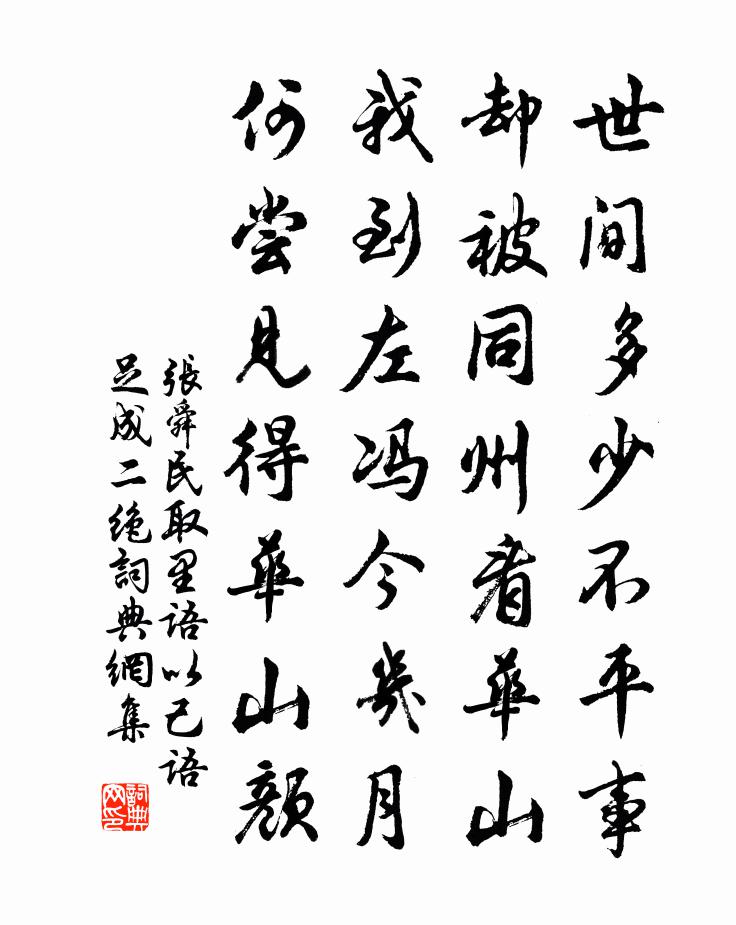 世间多少不平事
却被同州看華山
我到左冯今幾月
何尝見得華山颜
張舜民取里語以己語
足成二绝詞典網集
詞典网印